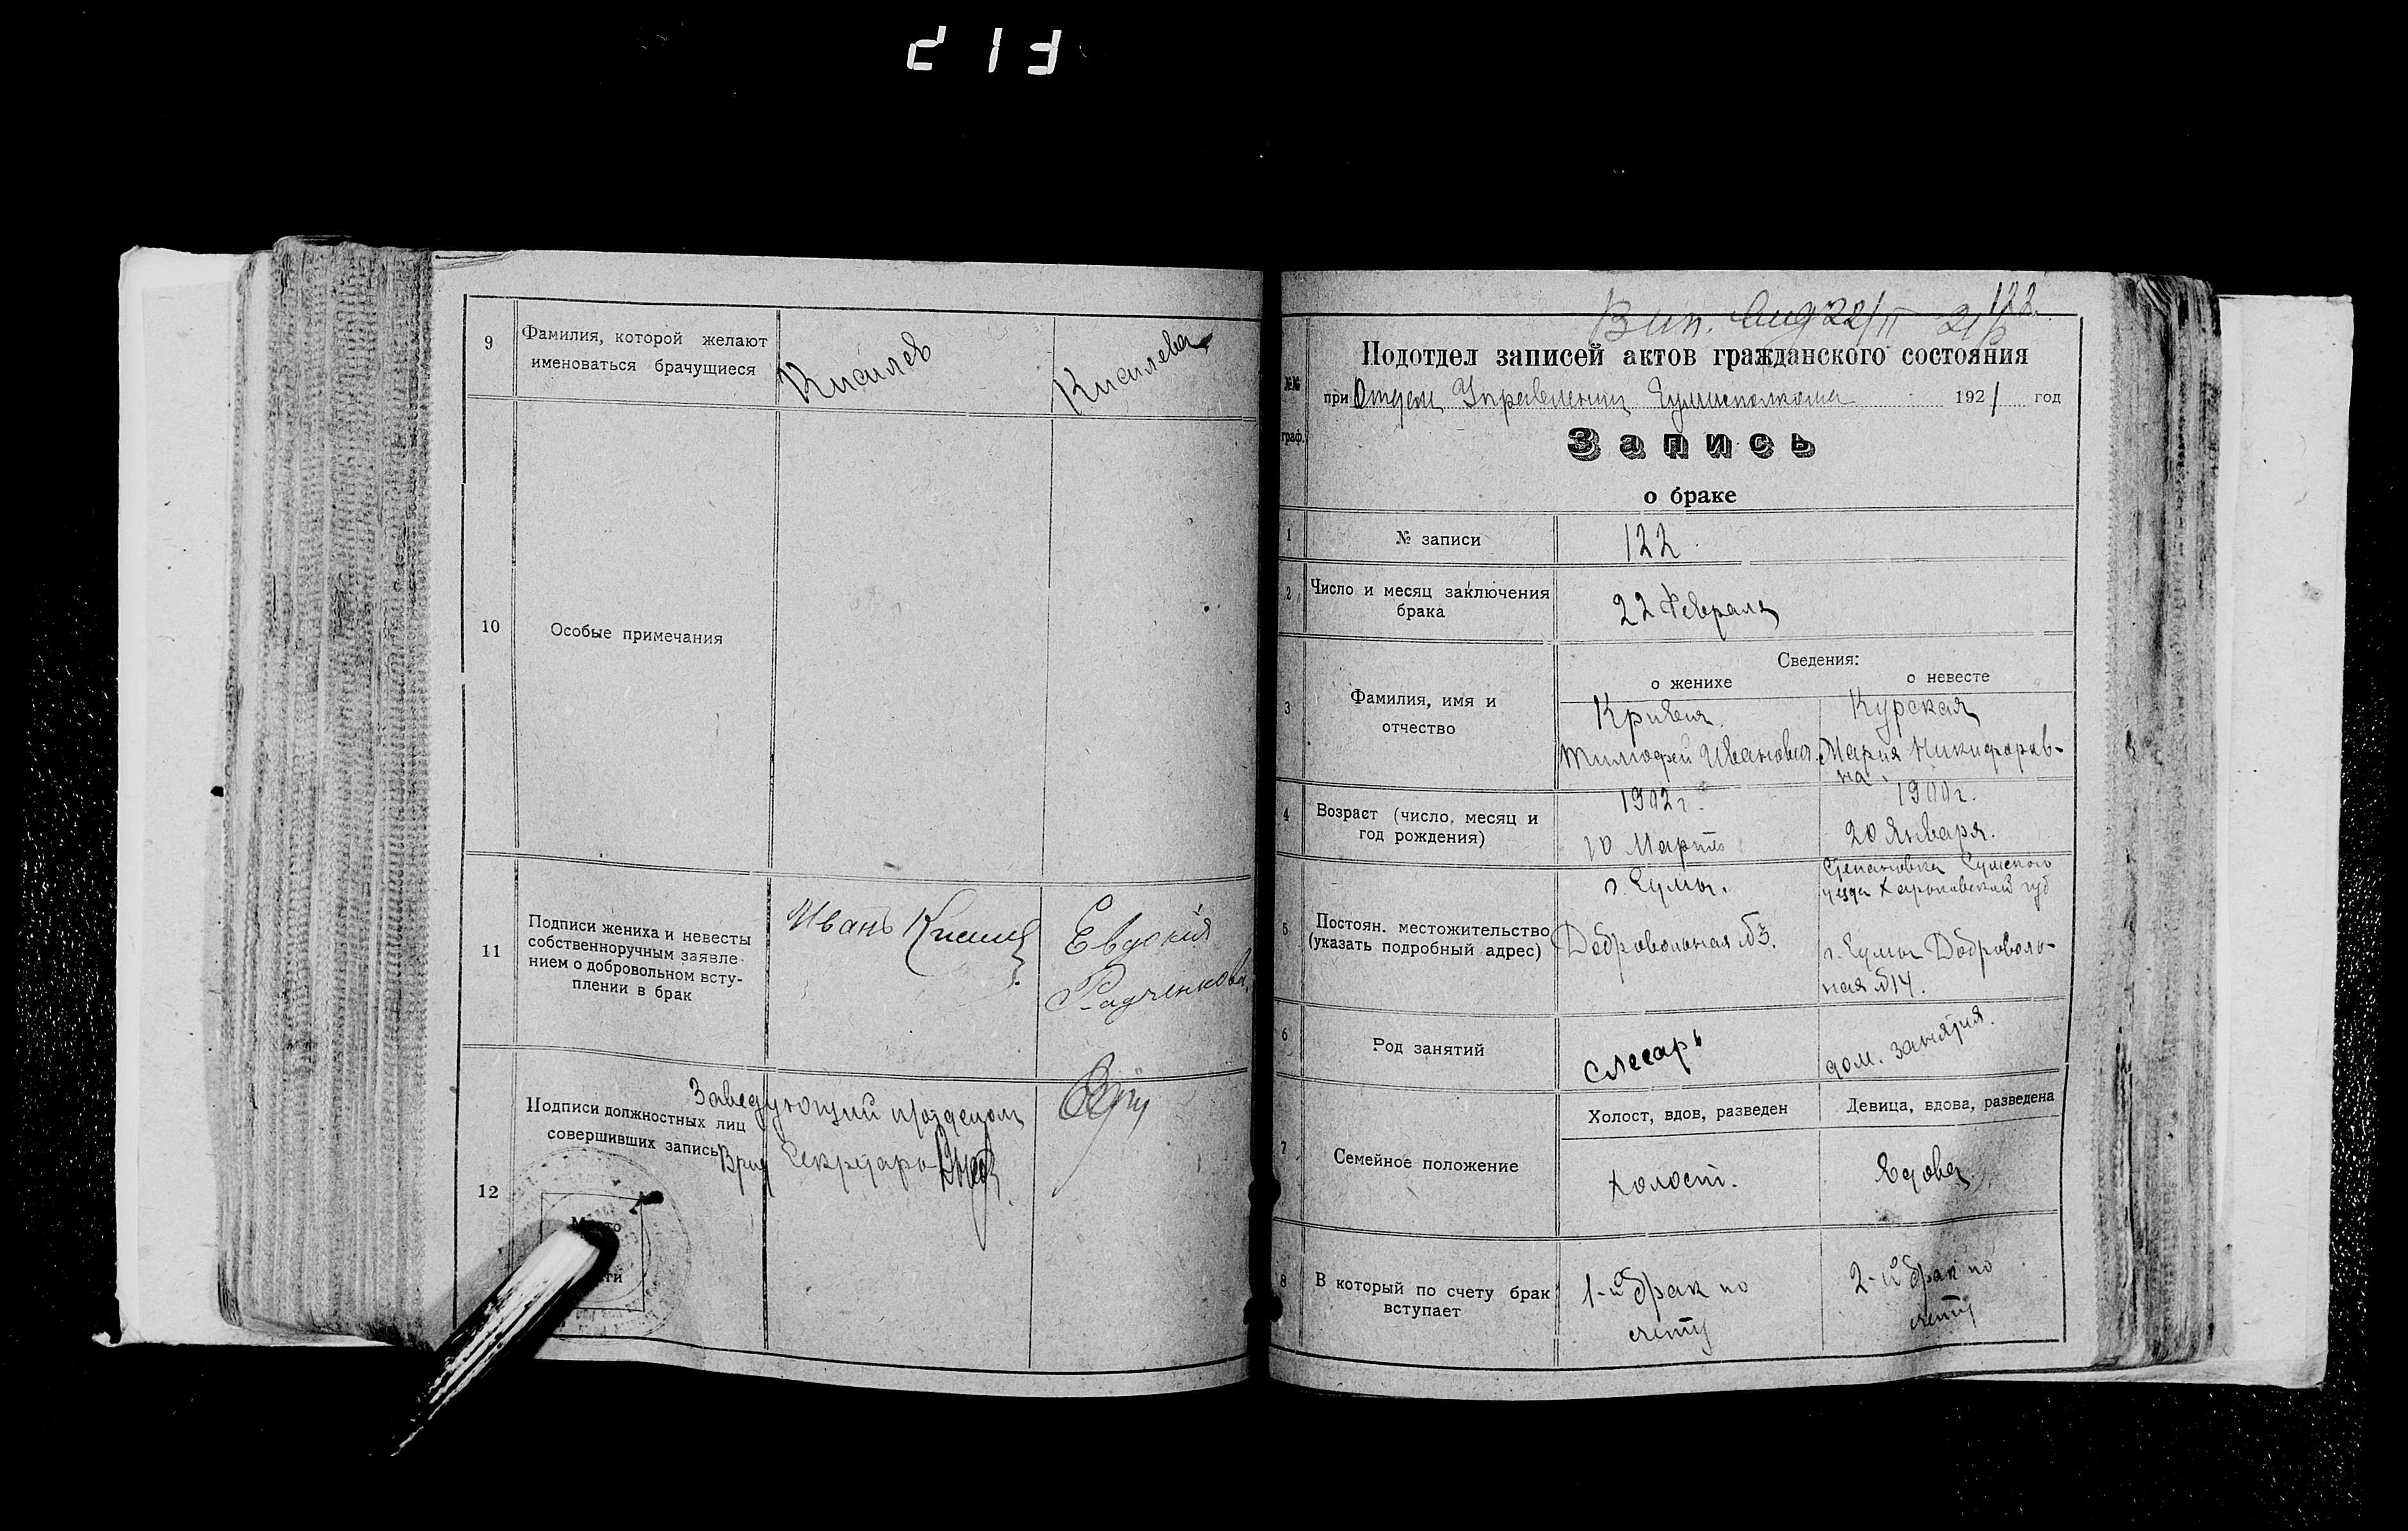 213
9
Фамилия, которой желают
именоваться брачущиеся
Кисилев
Кисилева
10
Особые примечания
11
Подписи жениха и невесты
собственноручным заявле-
нием о добровольном всту-
плении в брак
Иванъ
Евдокія
Радченкова
12
Подписи должностных лиц
совершивших запись
Заведующий
Секретарь
122
Подотдел записей актов гражданского состояния
№№
граф.
при Отделе Управления 1921 год
Запись
о браке
1
№ записи
122
2
Число и месяц заключения
брака
22 Февраля
Сведения:
о женихе
о невесте
3
Фамилия, имя и
отчество
Тимофей Иванович
Курская
Мария Никифоров-
на
4
Возраст (число, месяц и
год рождения)
1902 г.
10 Март
1900 г.
20 Января.
5
Постоян. местожительство
(указать подробный адрес)
г. Сумы.
Добровольная №3.
Степановка Сумского
уезда Харьковской губ
г. Сумы Доброволь-
ная №14.
6
Род занятий
слесарь
дом. занятия.
7
Семейное положение
Холост, вдов, разведен
Девица, вдова, разведена
холост.
Вдова
8
В который по счету брак
вступает
1-й брак по
счету
2-й брак по
счету